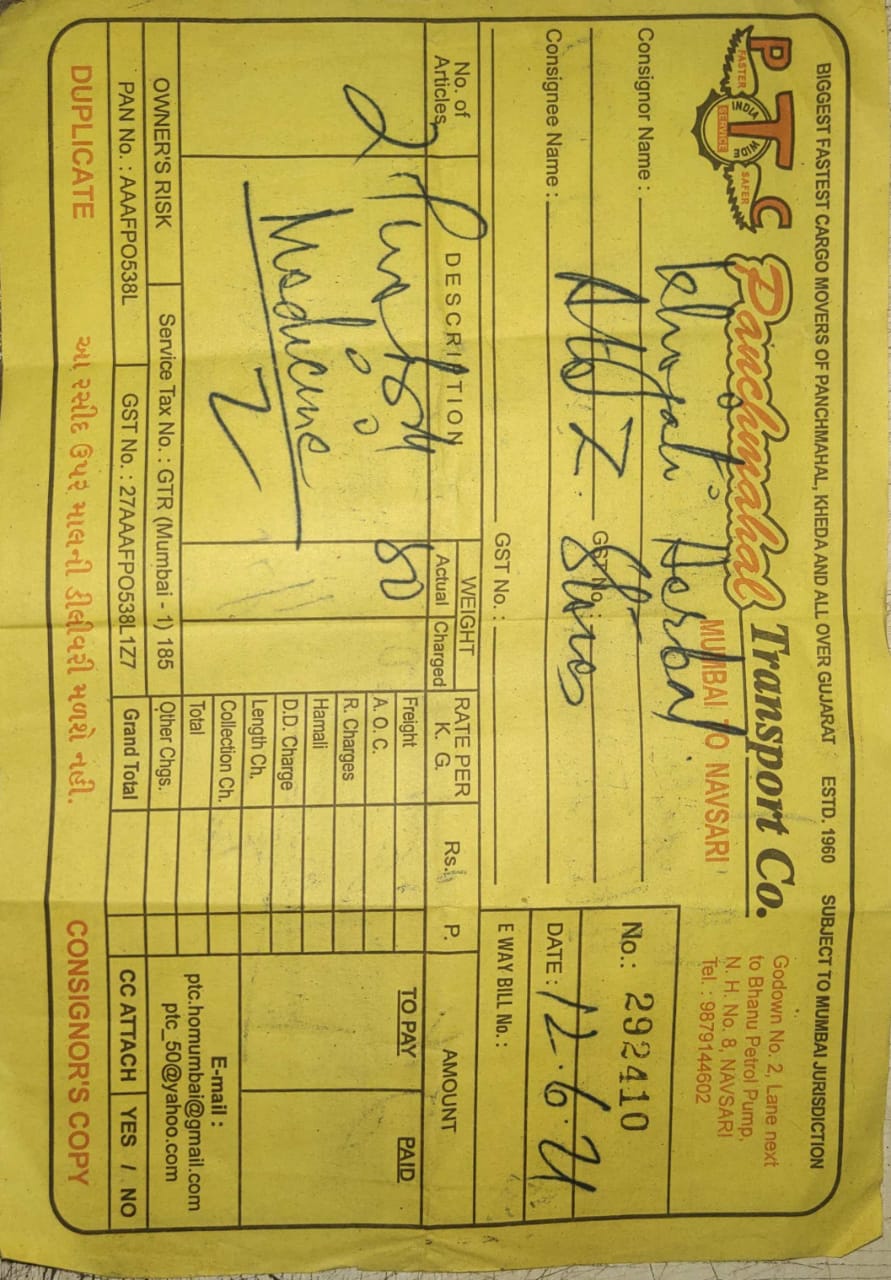 BIGGEST FASTEST CARGO MOVERS OF PANCHMAHAL, KHEDA AND ALL OVER GUJARAT ESTD. 1960 SUBJECT TO MUMBAI JURISDICTION
PTC
FASTER INDIA WIDE SAFER
SERVICE
Panchmahal Transport Co.
MUMBAI TO NAVSARI
Godown No. 2, Lane next
to Bhanu Petrol Pump,
N. H. No. 8, NAVSARI
Tel. : 9879144602
No.: 292410
DATE : 12.6.21
E WAY BILL No. :
Consignor Name : Herbal
GST No. :
Consignee Name : A to Z Stores
GST No. :
No. of Articles
DESCRIPTION
WEIGHT
Actual Charged
RATE PER K. G.
Rs. P.
AMOUNT
TO PAY PAID
2
Medicine
80
Freight
A. O. C.
R. Charges
Hamali
D.D. Charge
Length Ch.
Collection Ch.
Total
Other Chgs.
Grand Total
E-mail :
ptc.homumbai@gmail.com
ptc_50@yahoo.com
CC ATTACH YES / NO
OWNER'S RISK
Service Tax No. : GTR (Mumbai - 1) 185
PAN No. : AAAFPO538L
GST No. : 27AAAFPO538L1Z7
DUPLICATE
આ રસીદ ઉપર માલની ડીલીવરી મળશે નહી.
CONSIGNOR'S COPY